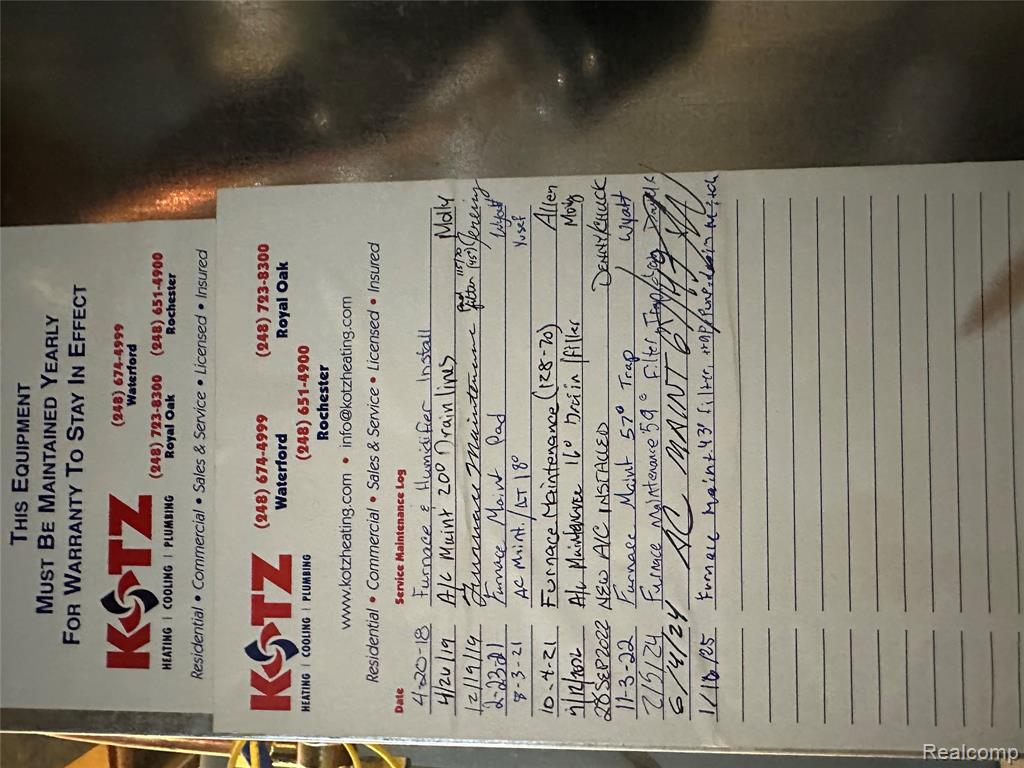 THIS EQUIPMENT
MUST BE MAINTAINED YEARLY
FOR WARRANTY TO STAY IN EFFECT
KOTZ
HEATING | COOLING | PLUMBING
(248) 674-4999
Waterford
(248) 723-8300 (248) 651-4900
Royal Oak Rochester
Residential • Commercial • Sales & Service • Licensed • Insured
KOTZ
HEATING | COOLING | PLUMBING
(248) 674-4999 (248) 723-8300
Waterford Royal Oak
(248) 651-4900
Rochester
www.kotzheating.com • info@kotzheating.com
Residential • Commercial • Sales & Service • Licensed • Insured
Date Service Maintenance Log
4-20-18 Furnace & Humidifer Install
4/20/19 A/C Maint 20° Drain lines Molly
12/19/19 Furnace Maintenance filter Jeremy
2-23-21 Furnace Maint Pad Wyatt
8-3-21 AC Maint. / ΔT 18° Yusef
10-4-21 Furnace Maintenance (128-70) Allen
A/C Maintenance 16° Drain filler Molly
28 SEP 2022 NEW A/C INSTALLED DENNY/CHUCK
11-3-22 Furnace Maint 57° Trap Wyatt
2/5/24 Furnace Maintenance 59° Filter, Trap
6/4/24 AC MAINT
1/18/25 Furnace Maint 43° filter,
Realcomp